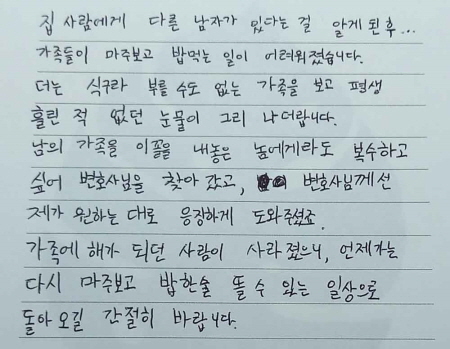 집 사람에게 다른 남자가 있다는 걸 알게 된 후...
가족들이 마주보고 밥먹는 일이 어려워졌습니다.
더는 식구라 부를 수도 없는 가족을 보고 평생
흘린 적 없던 눈물이 그리 나더랍니다.
남의 가족을 이꼴을 내놓은 놈에게라도 복수하고
싶어 변호사님을 찾아 갔고, 변호사님께선
제가 원하는 대로 응징하게 도와주셨죠.
가족에 해가 되던 사람이 사라졌으니, 언제가는
다시 마주보고 밥한술 뜰 수 있는 일상으로
돌아 오길 간절히 바랍니다.